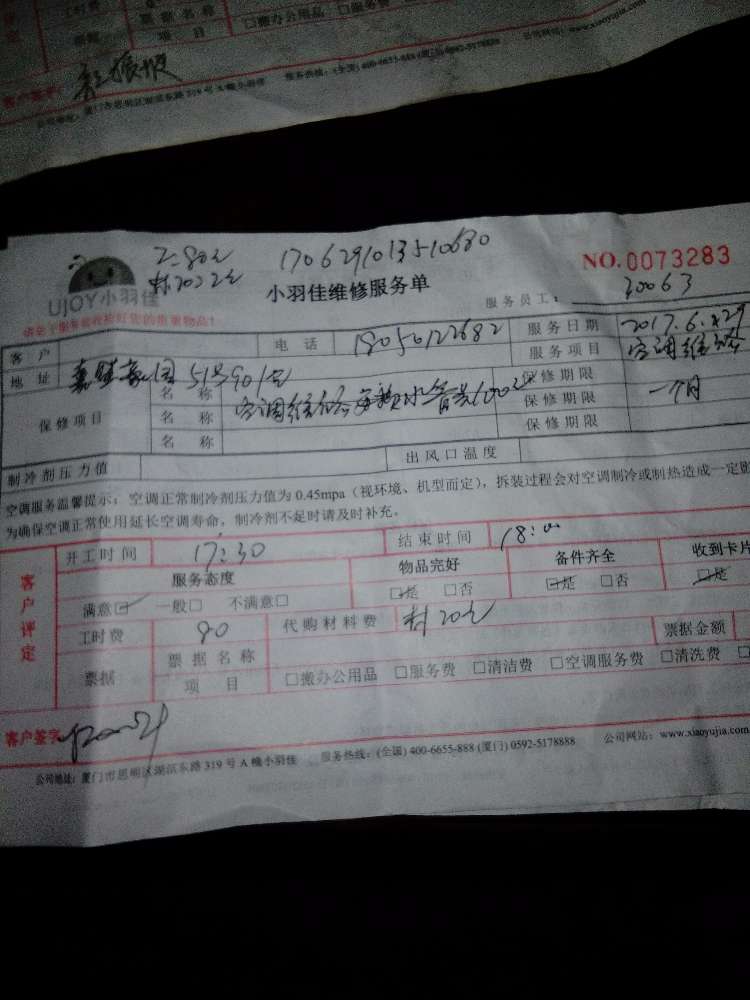 工时费
票据名称
□搬办公用品 □服务费
票据
项 目
客户签字:
服务热线: (全国) 400-6655-888 (厦门) 0592-5178888
公司网站: www.xiaoyujia.com
公司地址: 厦门市思明区湖滨东路 319 号 A 幢小羽佳
工=80元 1706291013510680
材20元
UJOY小羽佳
小羽佳维修服务单
NO.0073283
服务员工: 30063
客 户
电 话 18050122682
服务日期 2017.6.29
地 址 51号901室
服务项目 空调维修
保修项目
名 称 空调维修
保修期限
名 称
保修期限 一个月
名 称
保修期限
制冷剂压力值
出风口温度
空调服务温馨提示: 空调正常制冷剂压力值为 0.45mpa (视环境、机型而定), 拆装过程会对空调制冷或制热造成一定
为确保空调正常使用延长空调寿命, 制冷剂不足时请及时补充。
客户评定
开工时间 17:30
结束时间 18:00
服务态度
物品完好
备件齐全
收到卡片
满意☑ 一般□ 不满意□
☑是 □否
☑是 □否
☑是
工时费 80
代购材料费 材20元
票据金额
票据
票据名称
项 目
□搬办公用品 □服务费 □清洁费 □空调服务费 □清洗费
客户签字
公司地址: 厦门市思明区湖滨东路 319 号 A 幢小羽佳 服务热线: (全国) 400-6655-888 (厦门) 0592-5178888 公司网站: www.xiaoyujia.com